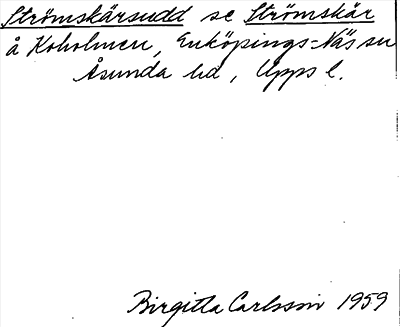 Strömskärsudd se Strömskär
å Koholmen, Enköpings-Näs sn
Åsunda hd, Upps l.
Birgitta Carlsson 1959